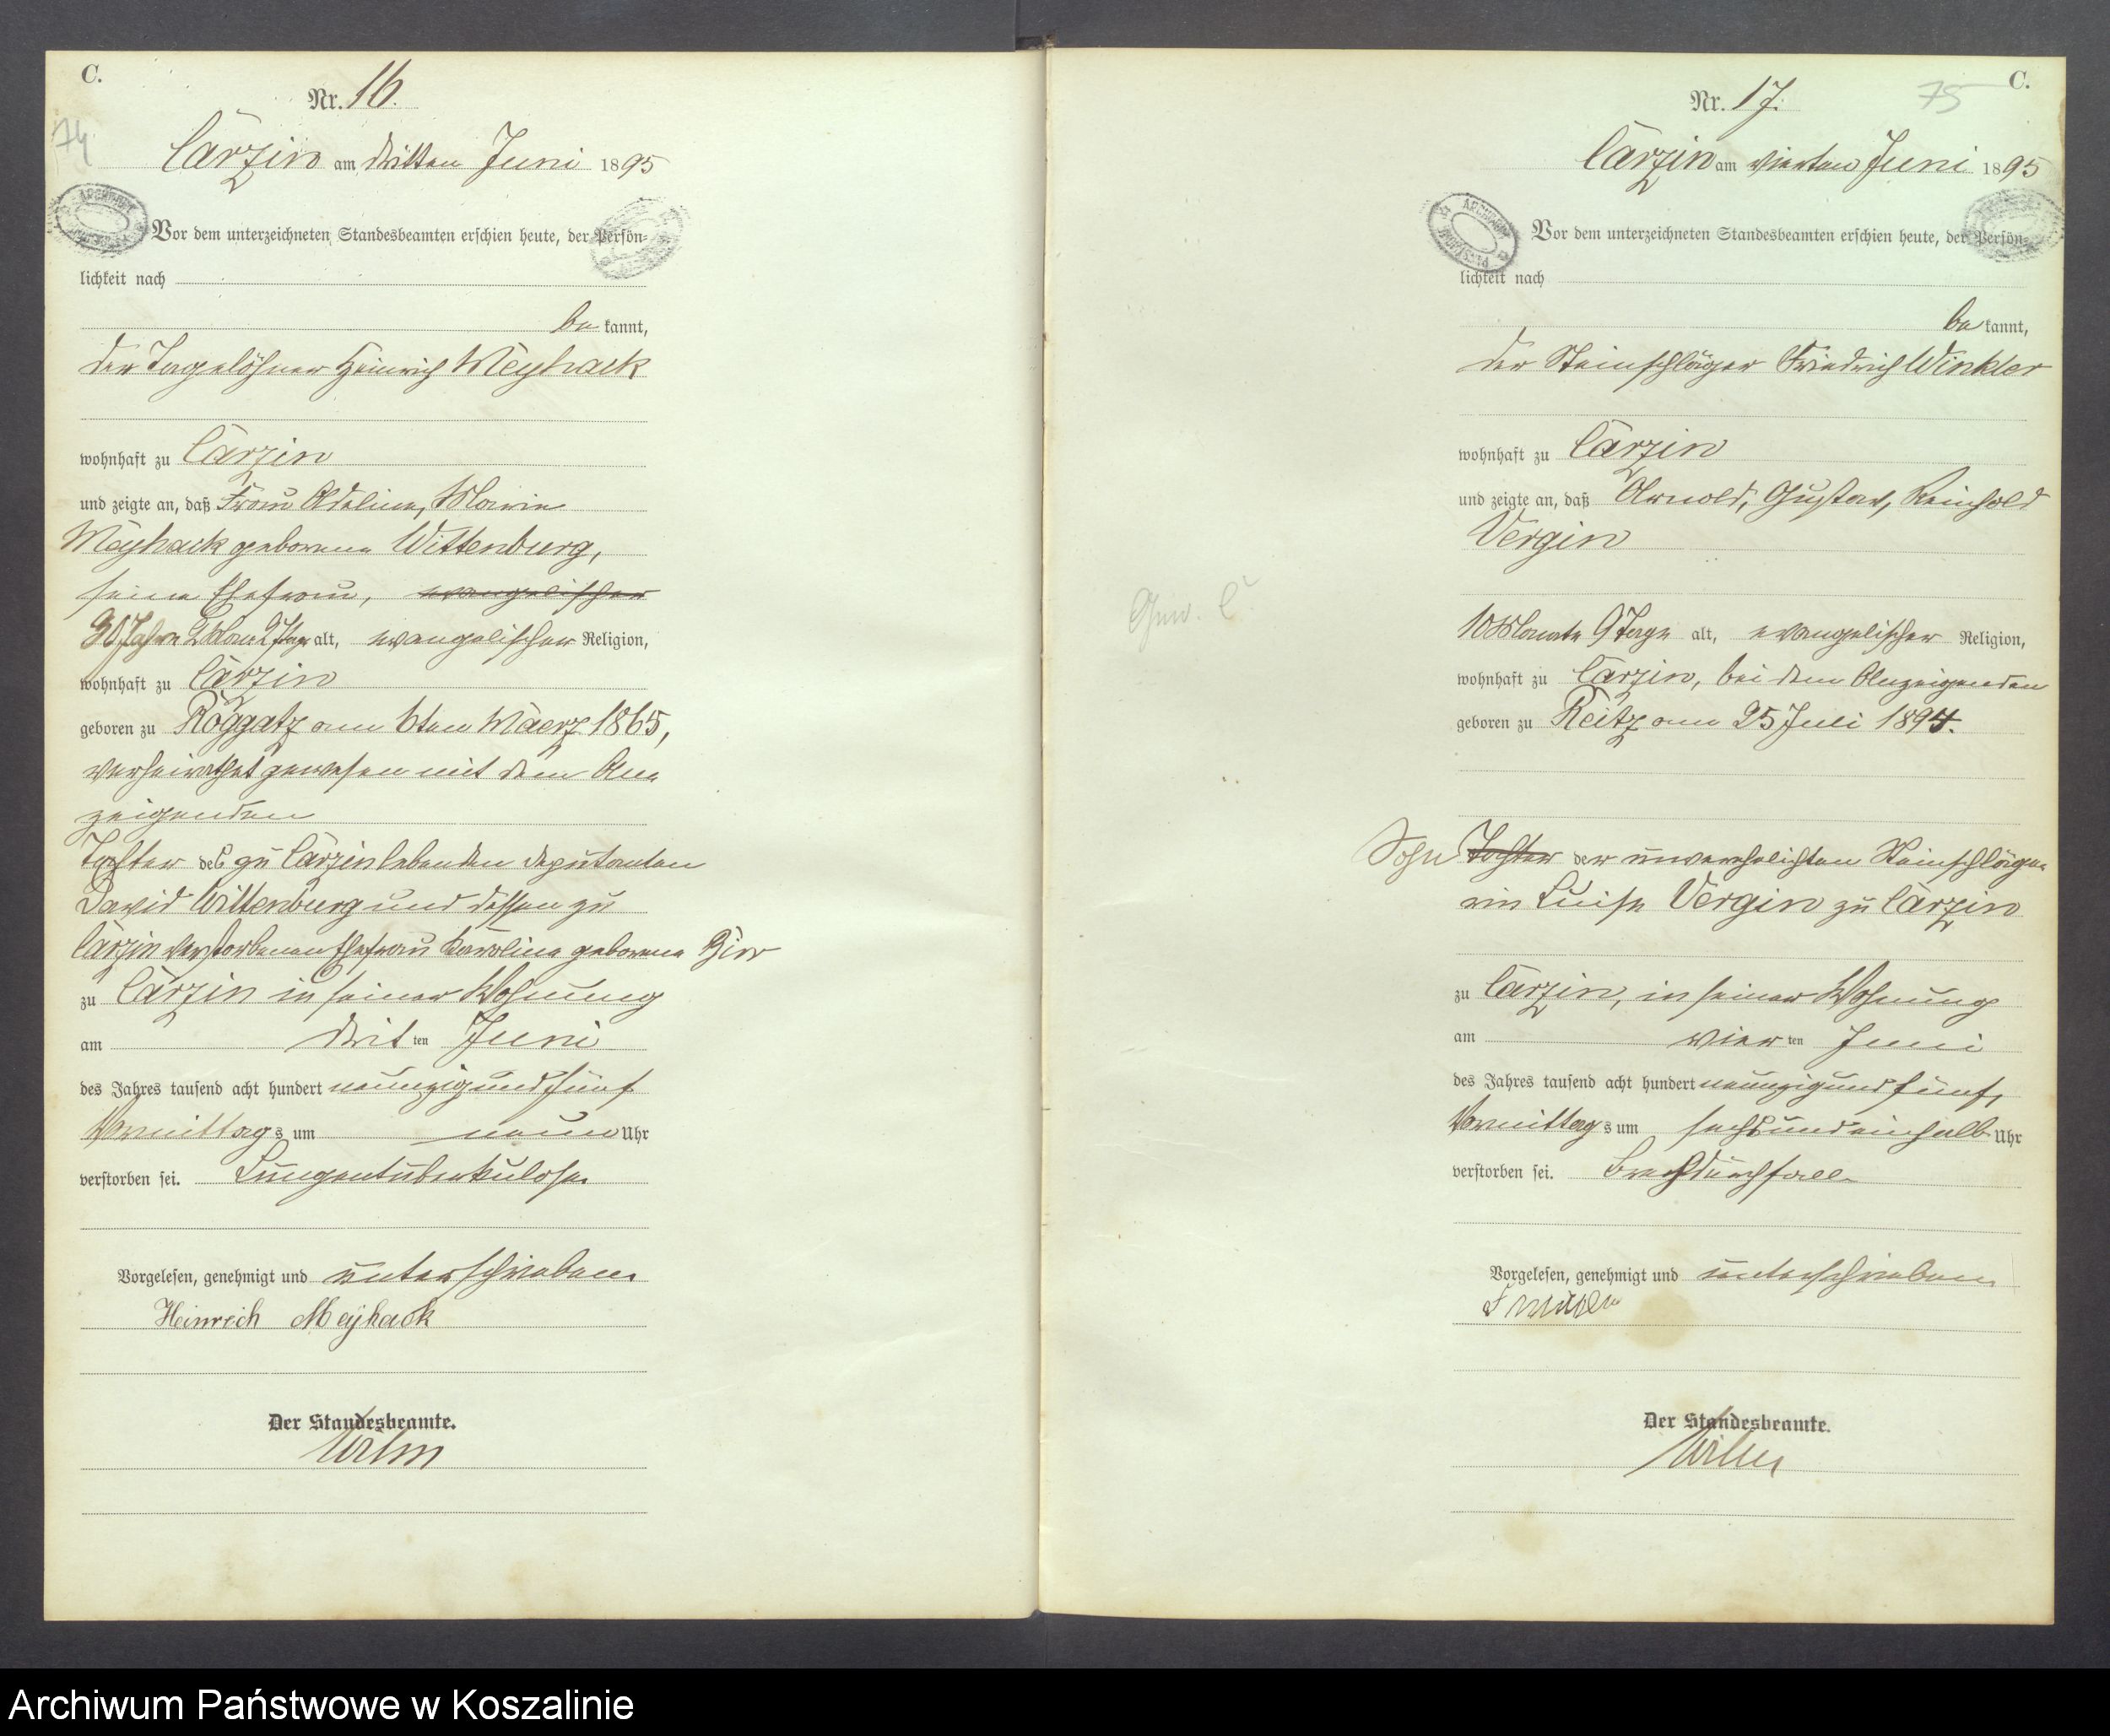 C.
Nr. 16.
74
Carzin am dritten Juni 1895
Vor dem unterzeichneten Standesbeamten erschien heute, der Persön-
lichkeit nach
be kannt,
der Tagelöhner Heinrich Meyhack
wohnhaft zu Carzin
und zeigte an, daß Frau Adeline, Marie
Meyhack geborene Wittenburg,
seine Ehefrau, evangelischer
30 Jahre 2 Mon 27 Tage alt, evangelischer Religion,
wohnhaft zu Carzin
geboren zu Roggatz am 6ten Maerz 1865,
verheirathet gewesen mit dem An-
zeigenden
Tochter des zu Carzin lebenden Deputanten
David Wittenburg und dessen zu
Carzin verstorbenen Ehefrau Karoline geborene
zu Carzin in seiner Wohnung
am drit ten Juni
des Jahres tausend acht hundert neunzig und fünf
Vormittag s um neun Uhr
verstorben sei. Lungentuberkulose.
Vorgelesen, genehmigt und unterschrieben.
Heinrich Meyhack
Der Standesbeamte.
C.
Nr. 17.
75
Carzin am vierten Juni 1895
ARCHIWUM
Vor dem unterzeichneten Standesbeamten erschien heute, der Persön-
lichkeit nach
be kannt,
der Steinschläger Friedrich Winkler
wohnhaft zu Carzin
und zeigte an, daß Arnold, Gustav, Reinhold
Vergin
10 Monate 9 Tage alt, evangelischer Religion,
wohnhaft zu Carzin, bei dem Anzeigenden
geboren zu Reitz am 25 Juli 1894.
Sohn Tochter der unverehelichten Steinschläge-
rin Luise Vergin zu Carzin
zu Carzin, in seiner Wohnung
am vier ten Juni
des Jahres tausend acht hundert neunzig und fünf,
Vormittag s um sechs und einhalb Uhr
verstorben sei. Brechdurchfall.
Vorgelesen, genehmigt und unterschrieben
Der Standesbeamte.
Archiwum Państwowe w Koszalinie